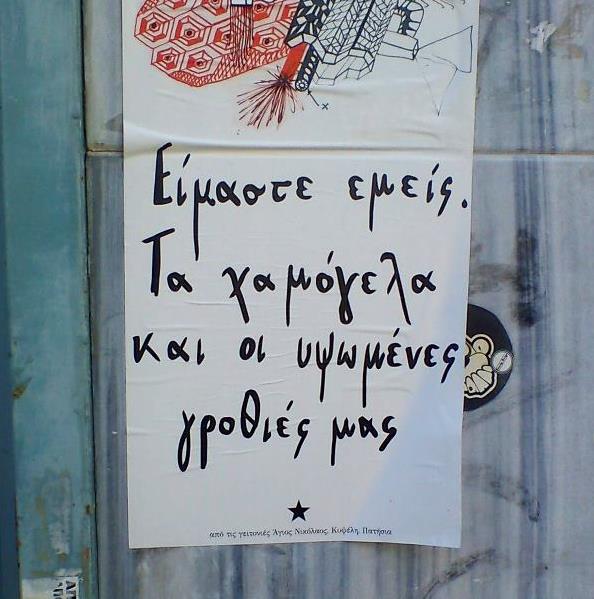 Είμαστε εμείς.
Τα χαμόγελα
και οι υψωμένες
γροθιές μας
από τις γειτονιές Άγιος Νικόλαος, Κυψέλη, Πατήσια